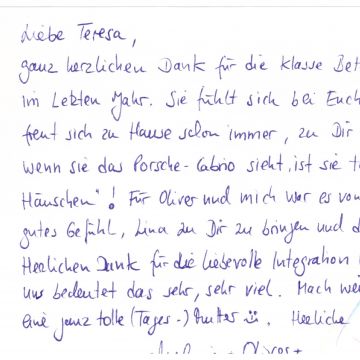 Liebe Teresa,
ganz herzlichen Dank für die klasse Bet
im letzten Jahr. Sie fühlt sich bei Euch
freut sich zu Hause schon immer, zu Dir
wenn sie das Porsche-Cabrio sieht, ist sie t
Häuschen"! Für Oliver und mich war es von
gutes Gefühl, Lina zu Dir zu bringen und d
Herzlichen Dank für die liebevolle Integration
uns bedeutet das sehr, sehr viel. Mach wei
eine ganz tolle (Tages-) Mutter ☺. Herzliche